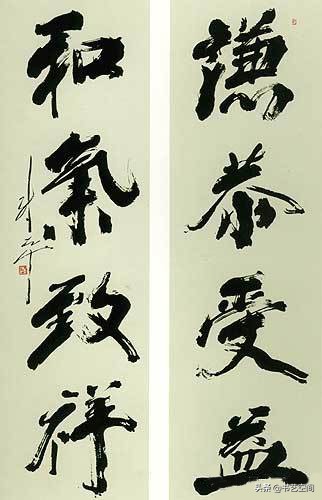 謙恭受益
和氣致祥
头条 @书艺空间